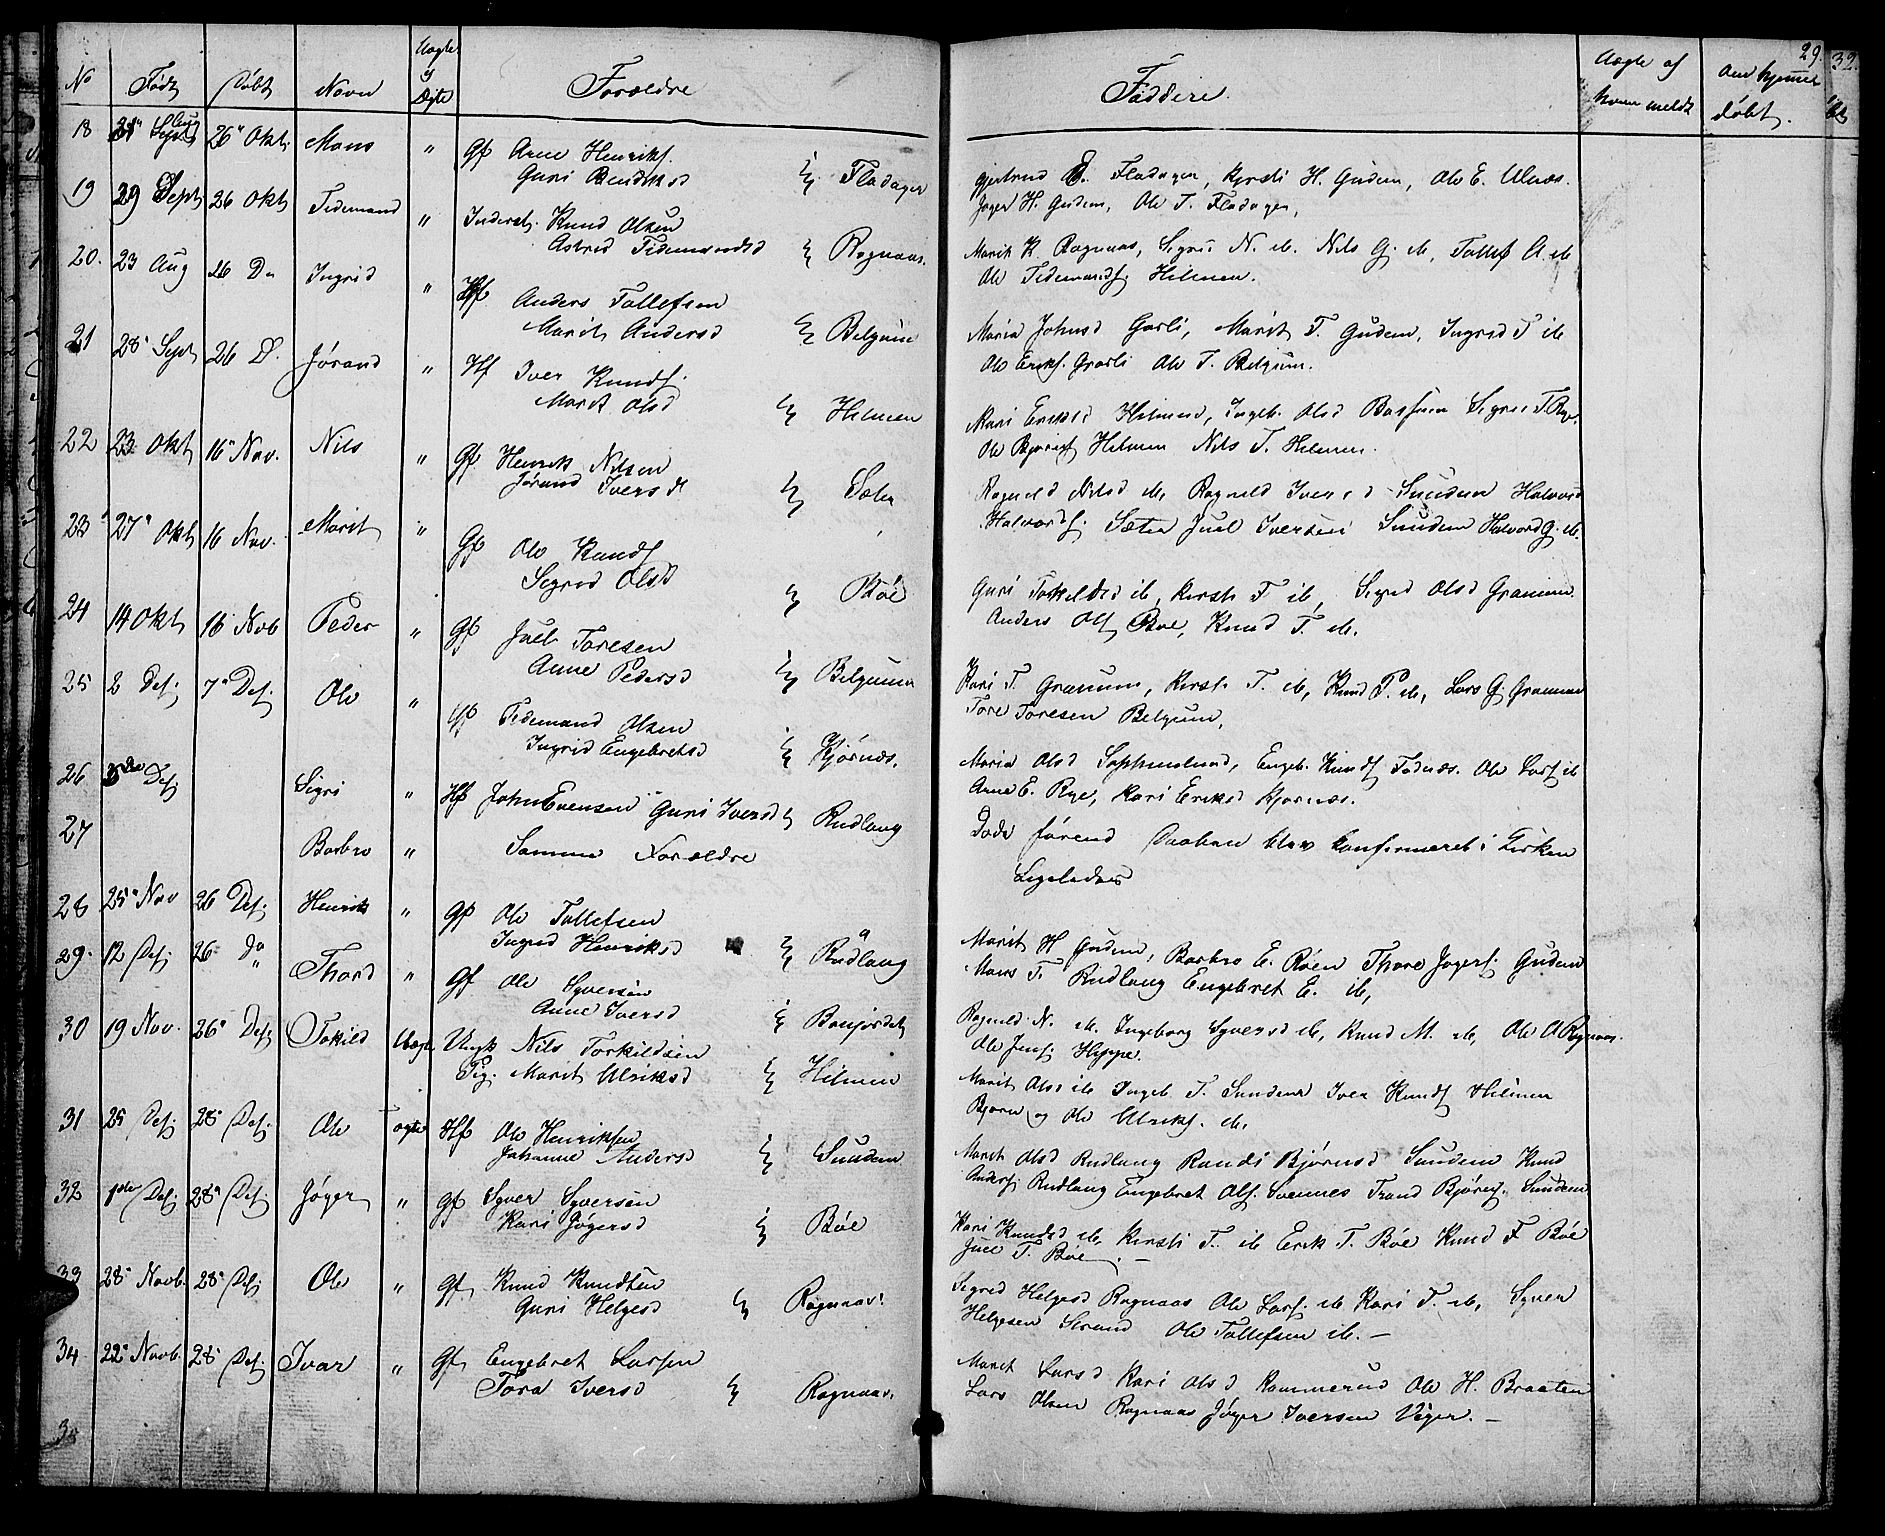 No Født Døbt Navn Uægte Ægte Forældre
18 31" Aug 26" Okt. Mons " Gf Arne Henriks.
Guri Bendiksd Fladager
19 29 Sept 26 Okt Tidemand " Inderst. Knud Olsen
Astrid Tidemandsd Rognaas.
20. 23 Aug 26 Do Ingrid " Hf Anders Tollefsen
Marit Andersd Belgum
21 28 Sept 26 D. Jørand " Hf Iver Knuds.
Marit Olsd Hilmen
22 23 Okt 16" Nov. Nils " Gf Henrik Nilsen
Jørand Iversd Sæter
23 27" Okt 16 Nov. Marit " Gf Ole Knuds
Sigrid Olsd Bøe
24 14 Okt 16 Novb Peder " Gf Juel Toresen
Anne Pedersd Belgum
25 2 Des. 7" Des. Ole " Gf Tidemand Olsen
Ingrid Engebretsd Kjørnæs.
26 Des Sigri " Hf John Evensen Guri Iversd Rudlang
27 Barbro " Samme Forældre
28 25" Nov 26 Des. Henrik " Gf Ole Tollefsen
Ingrid Henriksd Rudlang
29. 12 Des. 26 Do Thord " Gf Ole Syversen
Anne Iversd Bonjordet
30 19 Nov. 26" Des. Tokild Uægte Ungk Nils Torkildsen
Pig. Marit Ulriksd Hilmen
31 25 Des. 28 Des. Ole ægte Hf Ole Henriksen
Johanne Andersd Sundem
32 1ste Des. 28" Des. Jøger " Gf Syver Syversen
Kari Jøgersd Bøe
33 28" Novb. 28" Des. Ole " Gf Knud Knudsen
Guri Helgesd Rognaas
34 22" Novb. 28 Des. Ivar " Gf Engebret Larsen
Tora Iversd Rognaas.
Faddere. Uægte af hvem meldt døbt. 29. 32
Gjertrud E. Fladager, Kjersti H. Gudem, Ole E. Ulnæs.
Jøger H. Gudem, Ole T. Fladager,
Marit K. Rognaas, Sigri N. ib. Nils G. ib, Tollef A. ib
Ole Tidemands. Hilmen.
Maria Johnsd Garli, Marit T. Gudem, Ingrid T ib
Ole Eriks. Garli Ole T. Belgum.
Mari Eriksd Hilmen, Ingeb. Olsd Sigri T. Rye,
Ole Bjørns Hilmen Nils T. Hilmen.
Rognild Nilsd ib, Rognild Iversd Sundem Halvord
Halvords. Sæter Juel Iversen Sundem Halvord G. ib.
Guri Torkildsd ib, Kersti T ib, Sigrid Olsd Granum
Anders Ols Bøe, Knud T. ib.
Kari T. Granum, Kersti T. ib, Knud P. ib, Lars G. Granum
Tore Toresen Belgum,
Maria Olsd Engeb. Knuds Ole Lars ib
Arne E. Rye, Kari Eriksd Kjørnæs.
Døde førend Daaben blev konfirmeret i Kirken
Ligeledes
Marit H Gudem, Barbro E. Røen Thore Jøgers. Gudem
Mons T. Rudlang Engebret E. ib,
Rognild N. ib. Ingeborg Syversd ib, Knud M. ib, Ole O. Rognaas.
Ole Jens. Hippe.
Marit Ols ib Ingeb T. Sundem Iver Knuds Hilmen
Bjørn og Ole Ulriks. ib,
Marit Olsd Rudlang Randi Bjørnsd Sundem Knud
Anders. Rudlang Engebret Ols. Svennes Trond Bjørns. Sundem
Kari Knudsd ib, Kersti T. ib Erik T. Bøe Knud F Bøe
Juel T. Bøe. —
Sigrid Helgesd Rognaas Ole Lars. ib Kari T. ib, Syver
Helgesen Strand Ole Tollefsen ib. —
Marit Larsd Kari Olsd Kammerud Ole H. Braaten
Lars Olsen Rognaas Jøger Iversen Viger. —